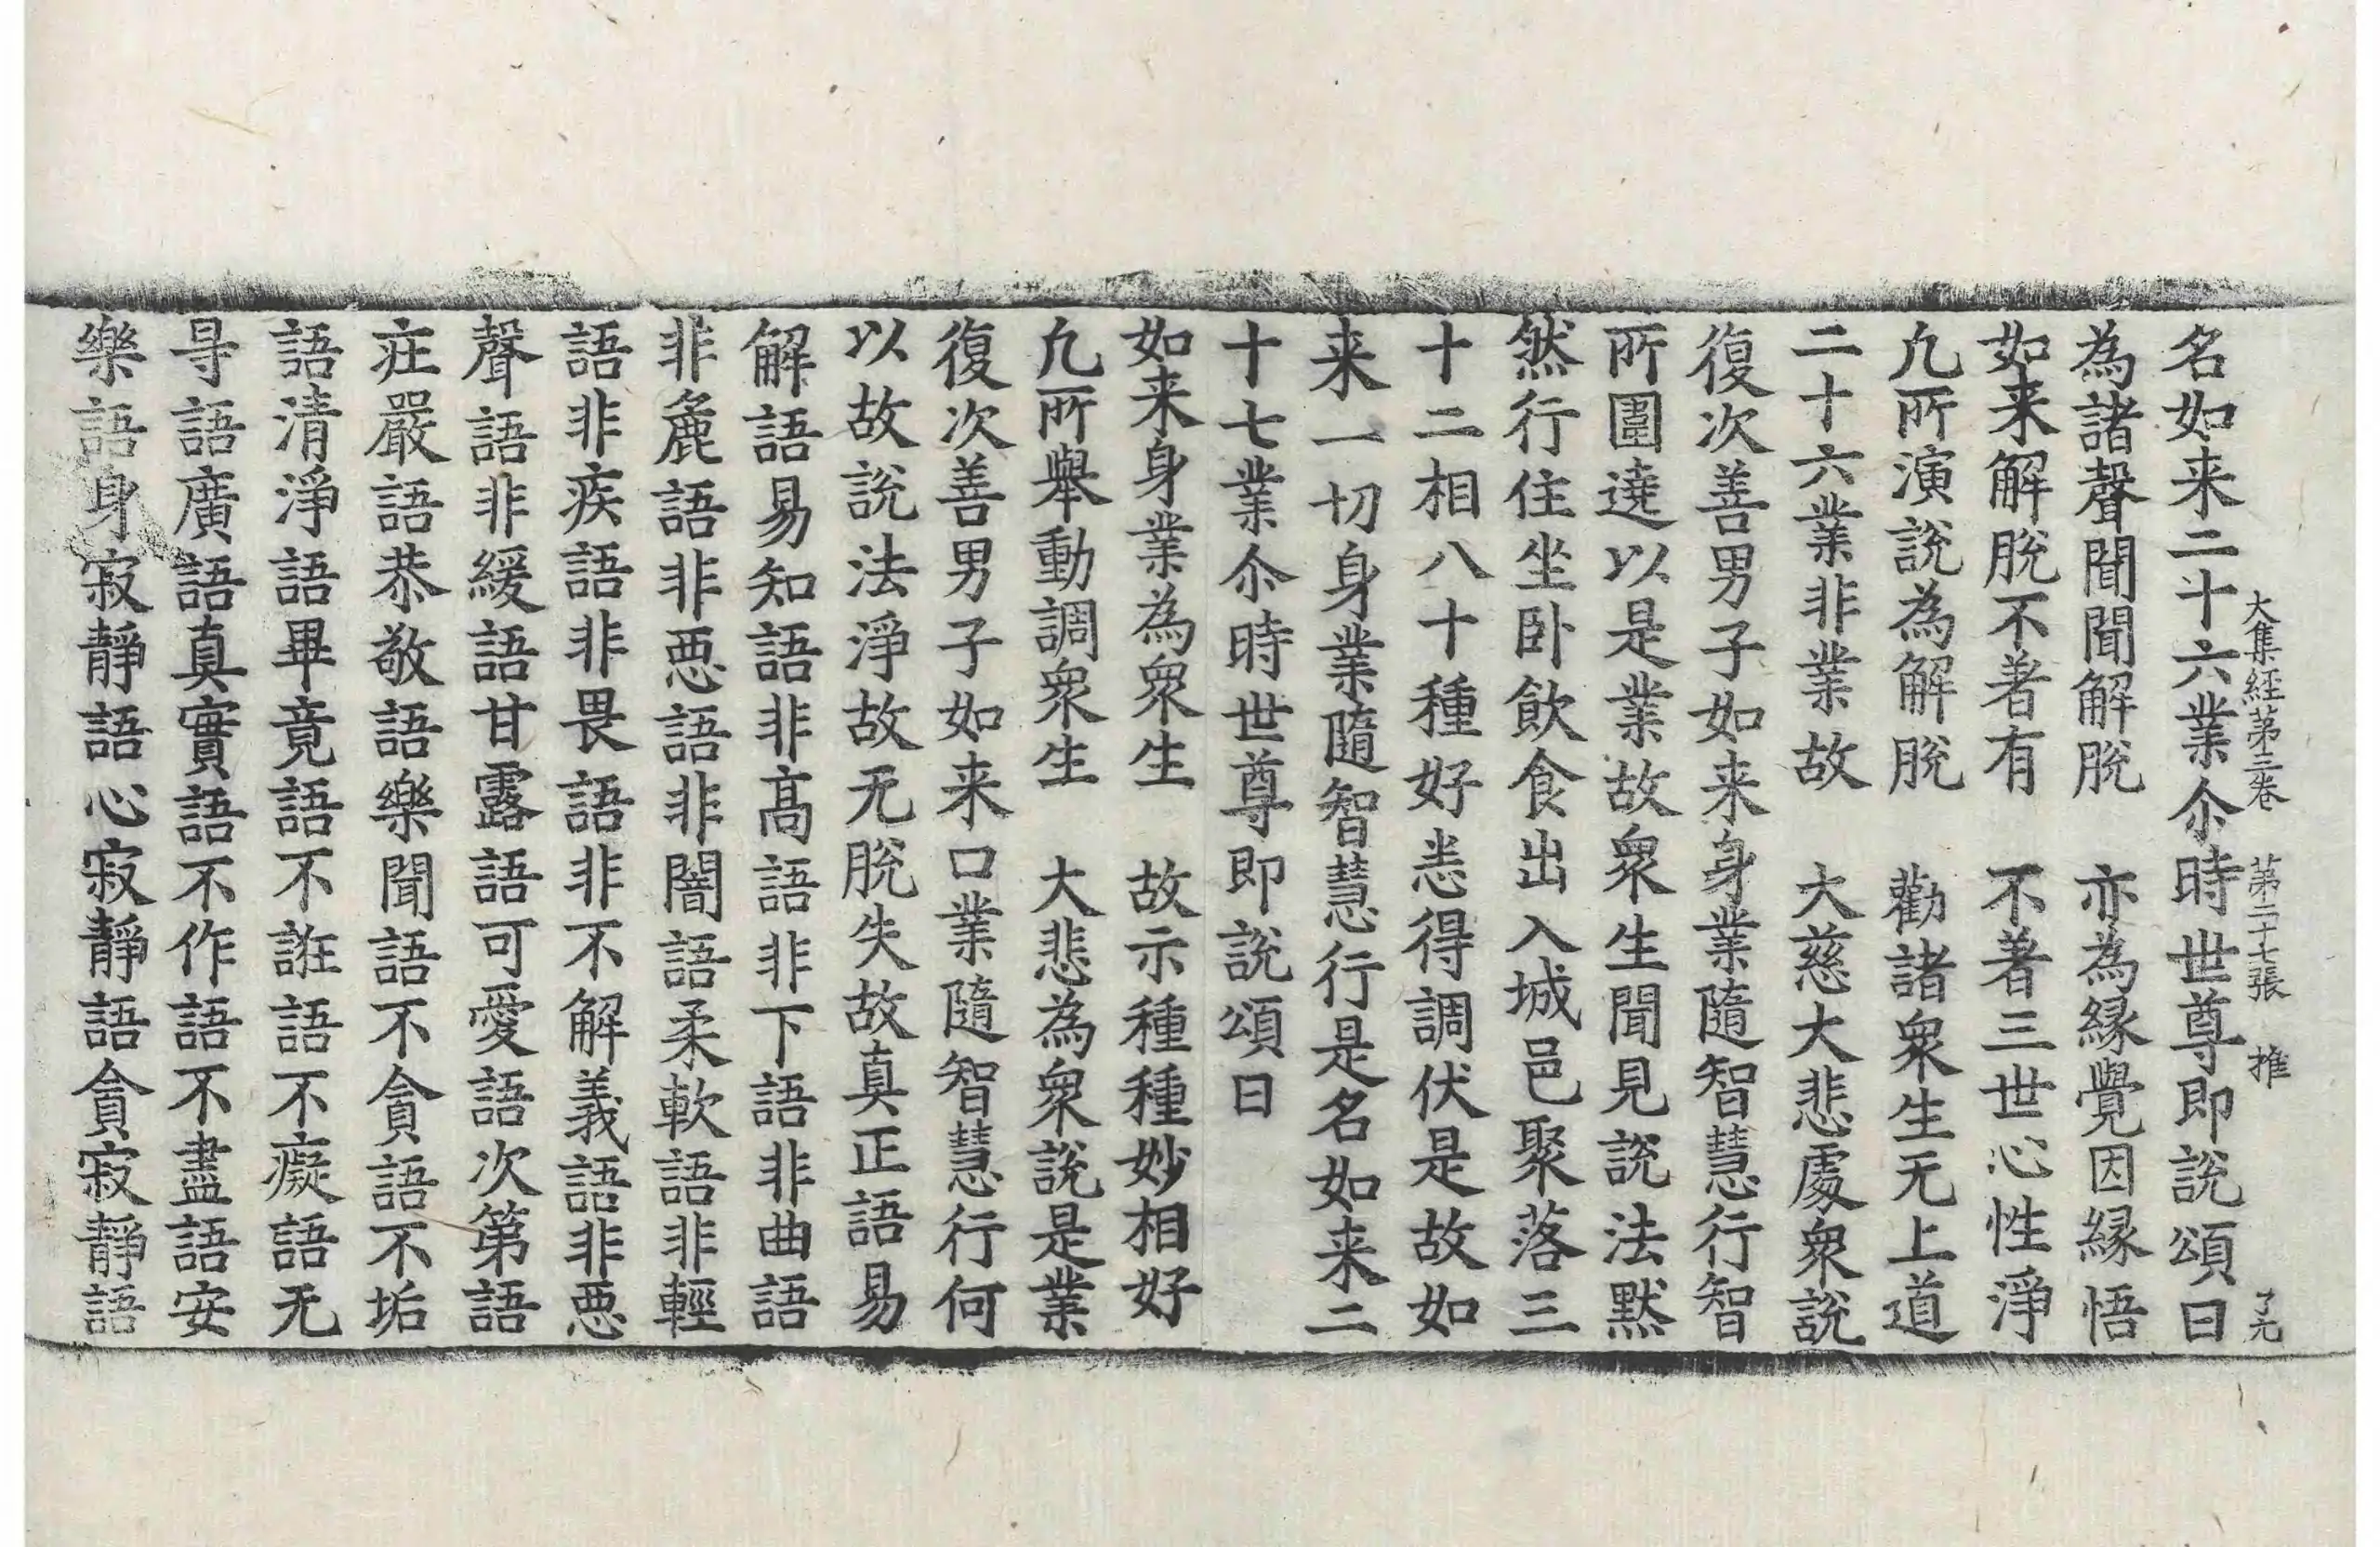 大集経苐三卷 苐二十七張 推 了元
名如来二十六業尒時世尊即說頌曰
為諸聲聞聞解脫 亦為縁覺因縁悟
如来解脫不著有 不著三世心性淨
凢所演說為解脫 勸諸衆生无上道
二十六業非業故 大慈大悲處衆說
復次善男子如来身業隨智慧行智
所圍遶以是業故衆生聞見說法黙
然行住坐卧飲食出入城邑聚落三
十二相八十種好恙得調伏是故如
来一切身業隨智慧行是名如来二
十七業尒時世尊即說頌曰
如来身業為衆生 故示種種妙相好
凢所舉動調衆生 大悲為衆說是業
復次善男子如来口業隨智慧行何
以故說法淨故无脫失故真正語易
解語易知語非髙語非下語非曲語
非麁語非悪語非闇語柔軟語非輕
語非疾語非畏語非不解義語非悪
聲語非緩語甘露語可愛語次第語
庄嚴語恭敬語樂聞語不貪語不垢
語清淨語畢竟語不誑語不癡語无
㝵語廣語真實語不作語不盡語安
樂語身寂靜語心寂靜語貪寂靜語